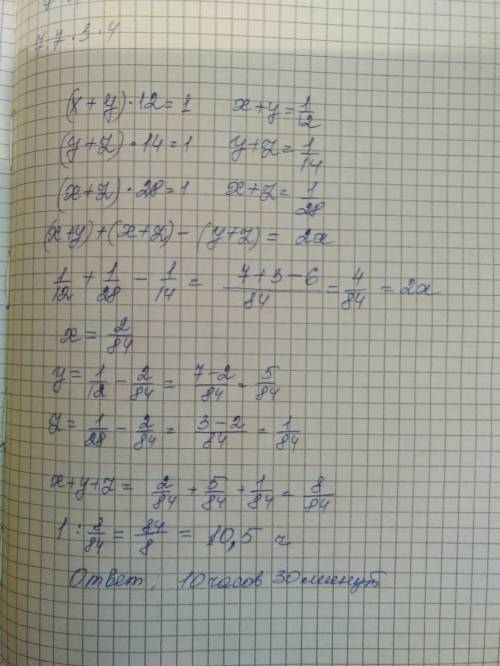 7.7.3.4
(x+y)·12=1   x+y=1/12
(y+z)·14=1   y+z=1/14
(x+z)·28=1   x+z=1/28
(x+y)+(x+z)-(y+z)= 2x
1/12+1/28-1/14= 7+3-6/84=4/84=2x
x=2/84
y=1/12-2/84=7-2/84=5/84
z=1/28-2/84=3-2/84=1/84
x+y+z= 2/84+5/84+1/84=8/84
1:8/84=84/8=10,5 ч
Ответ: 10 часов 30 минут